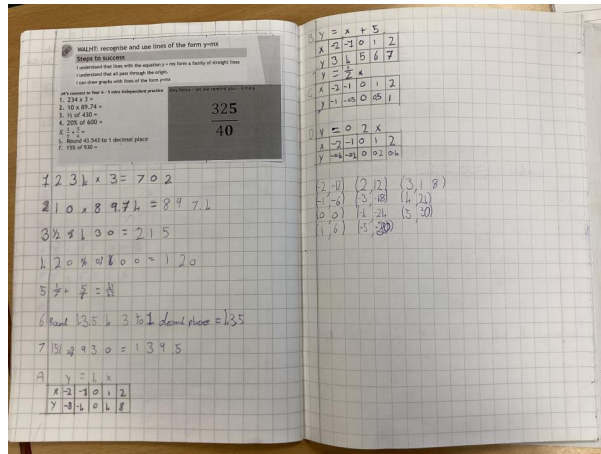 WALHT: recognise and use lines of the form y=mx
Steps to success
I understand that lines with the equation y = mx form a family of straight lines
I understand that all pass through the origin.
I can draw graphs with lines of the form y=mx
1. 234 x 3 =
2. 10 x 89.74 =
3. ½ of 430 =
4. 20% of 600 =
5.
6. Round 43.543 to 1 decimal place
7. 15% of 930 =
325
40
1 234 x 3 = 702
2 10 x 89.74 = 897.4
3 ½ of 430 = 215
4 20% of 600 = 120
5
6 Round 43.543 to 1 decimal place = 43.5
7 15% of 930 = 1395
A y = 4x
x -2 -1 0 1 2
y -8 -4 0 4 8
B y = x + 5
x -2 -1 0 1 2
y 3 4 5 6 7
C y = ½ x
x -2 -1 0 1 2
y -1 -0.5 0 0.5 1
D y = 0.2x
x -2 -1 0 1 2
y -0.4 -0.2 0 0.2 0.4
(-2,-12) (2,12) (3,18)
(-1,-6) (-3,-18) (4,24)
(0,0) (-4,-24) (5,30)
(1,6) (-5,-30)